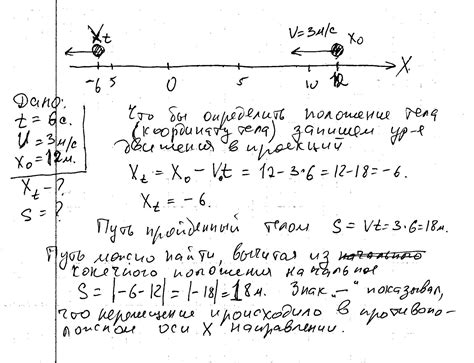 Xt V=3м/с X0
-6 5 0 5 10 12 X
Дано:
t=6с.
V=3м/с
X0=12м.
Xt-?
S=?
Что бы определить положение тела
(координату тела) запишем ур-е
движения в проекций
Xt=X0-V0t=12-3·6=12-18=-6.
Xt=-6.
Путь пройденный телом S=Vt=3·6=18м.
Путь можно найти, вычитая из
конечного положения начальное
S=|-6-12|=|-18|=18м. Знак "-" показывал,
что перемещение происходило в противопо-
ложном оси X направлении.